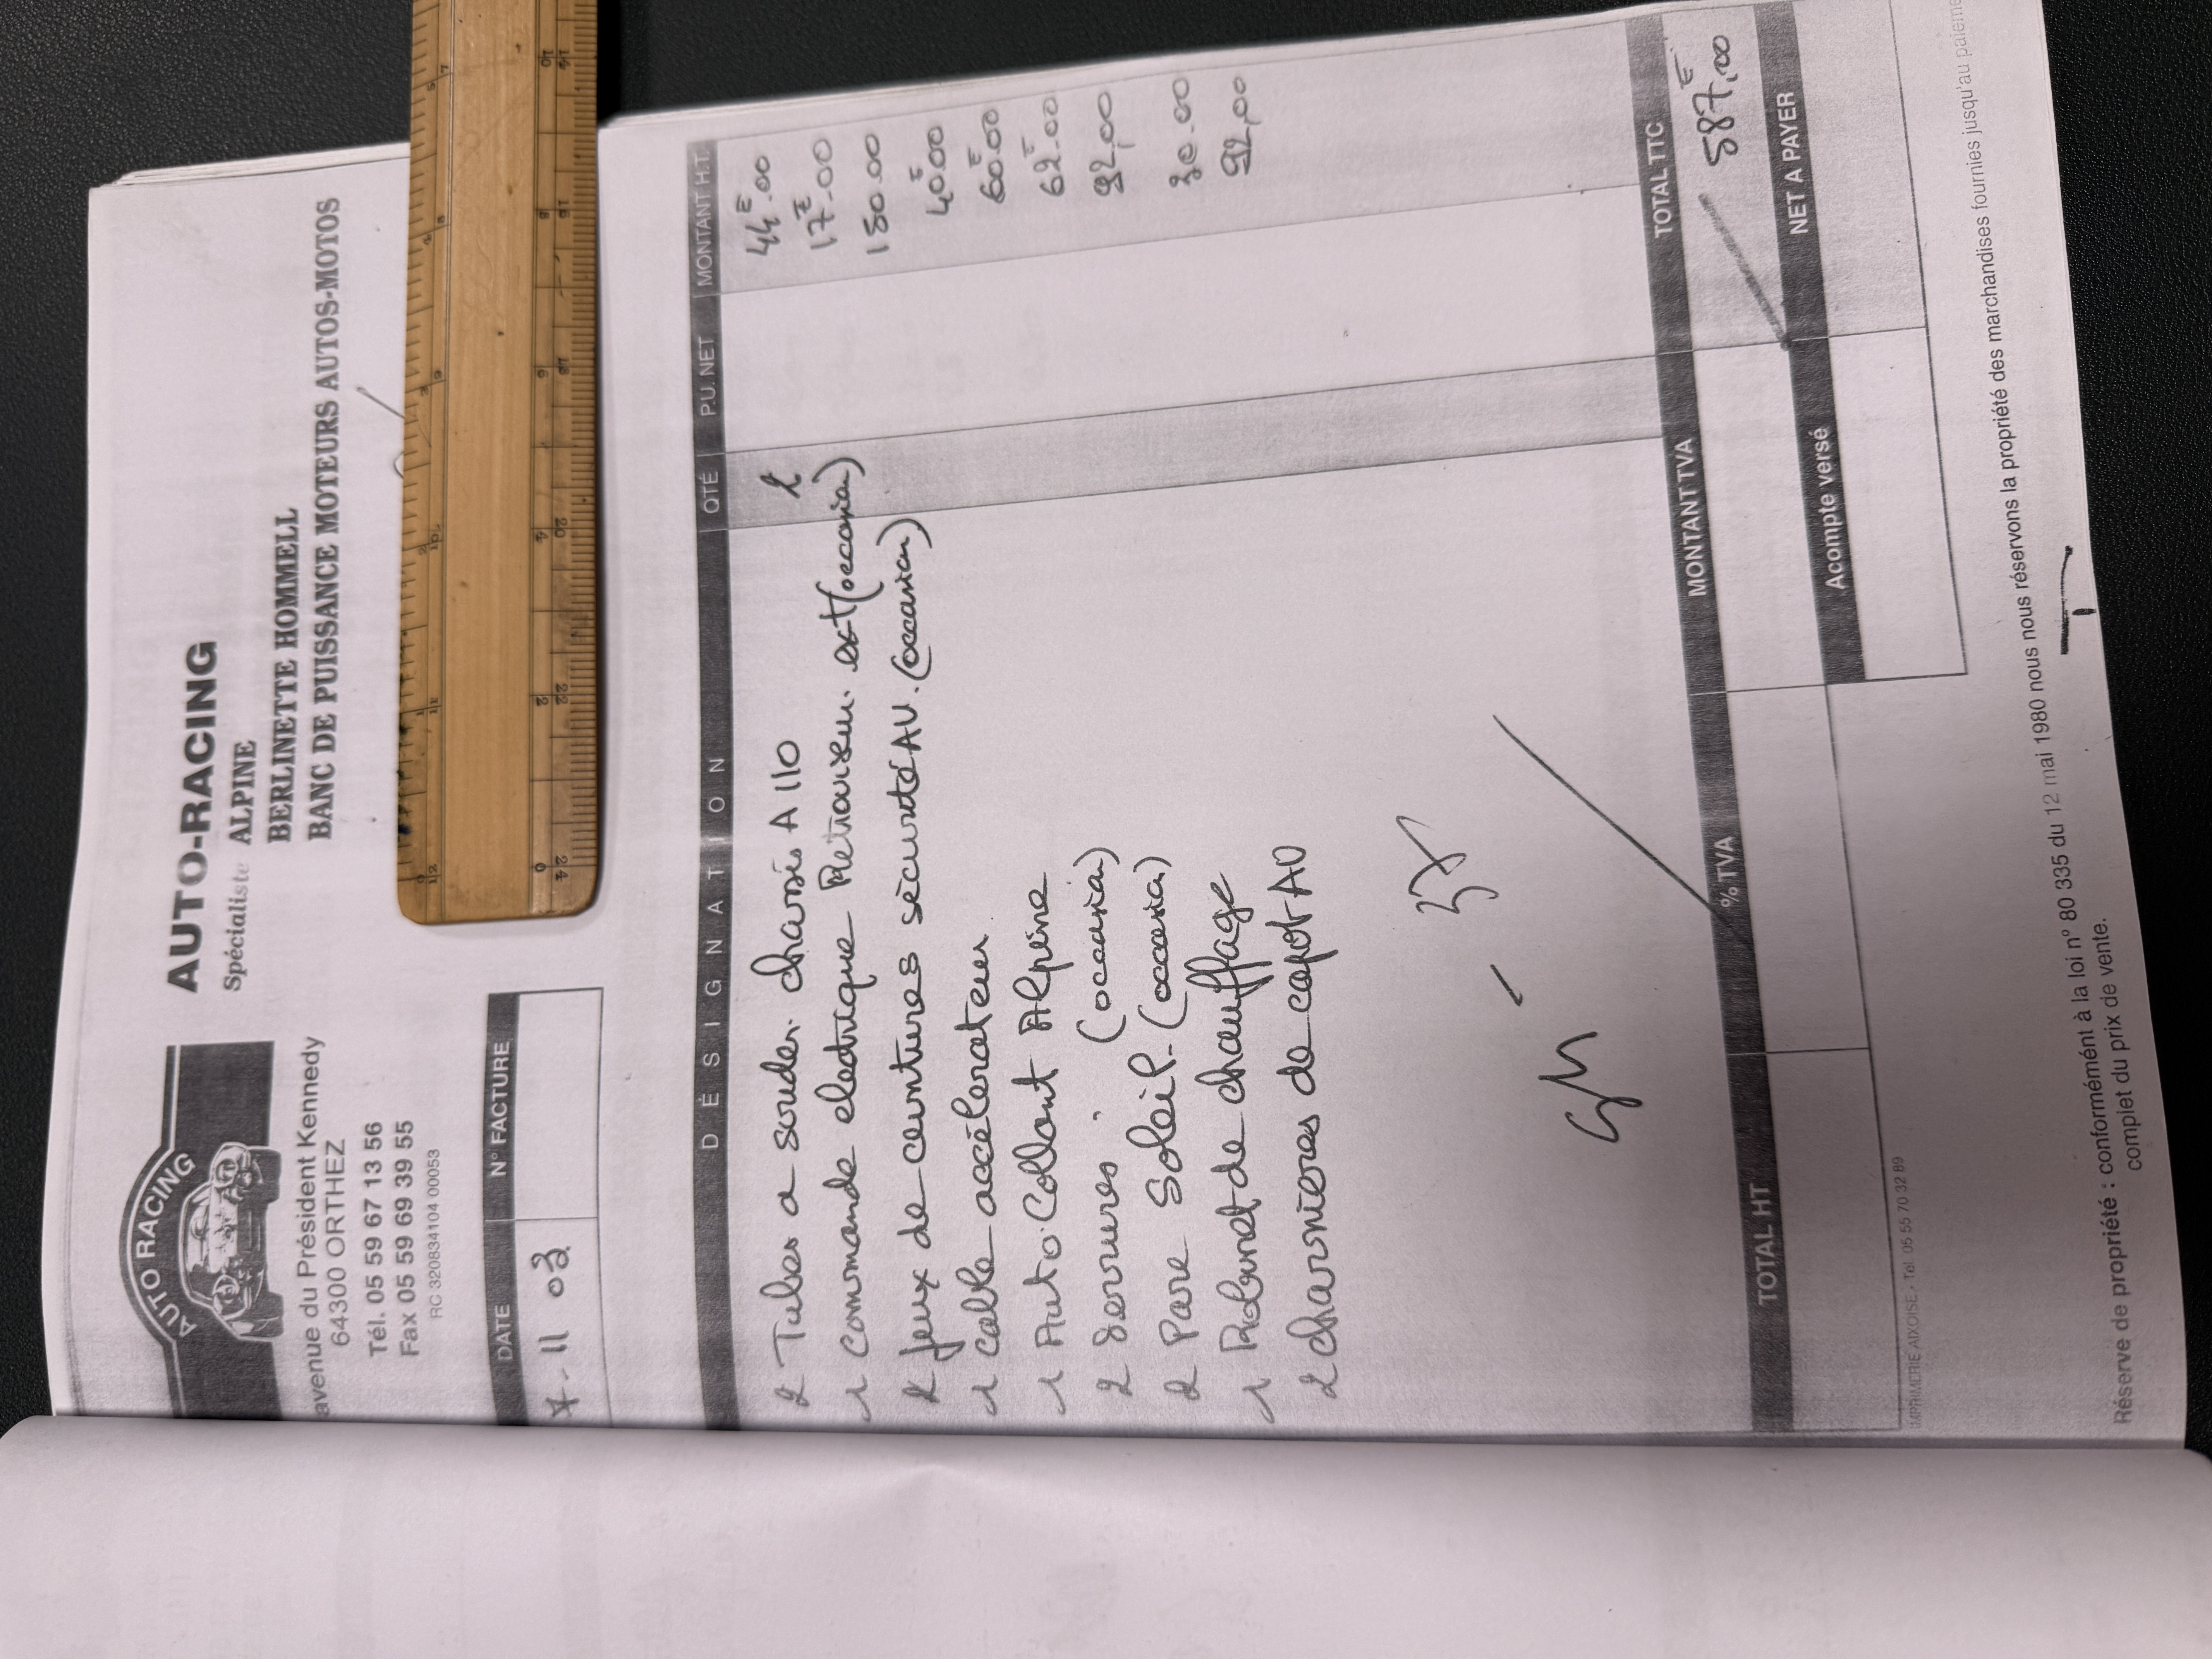 AUTO RACING
AUTO-RACING
Spécialiste ALPINE
BERLINETTE HOMMELL
BANC DE PUISSANCE MOTEURS AUTOS-MOTOS
avenue du Président Kennedy
64300 ORTHEZ
Tél. 05 59 67 13 56
Fax 05 59 69 39 55
RC 320834104 00053
DATE N° FACTURE
11 03
DÉSIGNATION QTÉ P.U. NET MONTANT H.T.
2 Tubes a souder chassis A110 44E.00
1 commande electrique Retroviseur ext (occasion) 17E.00
2 jeux de ceintures sècurité AV. (occasion) 150.00
1 cable accélerateur 40E.00
1 Auto Collant Alpine 60E.00
2 serrures (occasion) 62E.00
2 Pare Soleil. (occasion) 92,00
1 Robinet de chauffage 30.00
2 charnieres de capot AV 92,00
TOTAL HT % TVA MONTANT TVA TOTAL TTC
587,00E
Acompte versé NET A PAYER
IMPRIMERIE AIXOISE - Tél. 05 55 70 32 89
Réserve de propriété : conformément à la loi n° 80 335 du 12 mai 1980 nous nous réservons la propriété des marchandises fournies jusqu'au
complet du prix de vente.